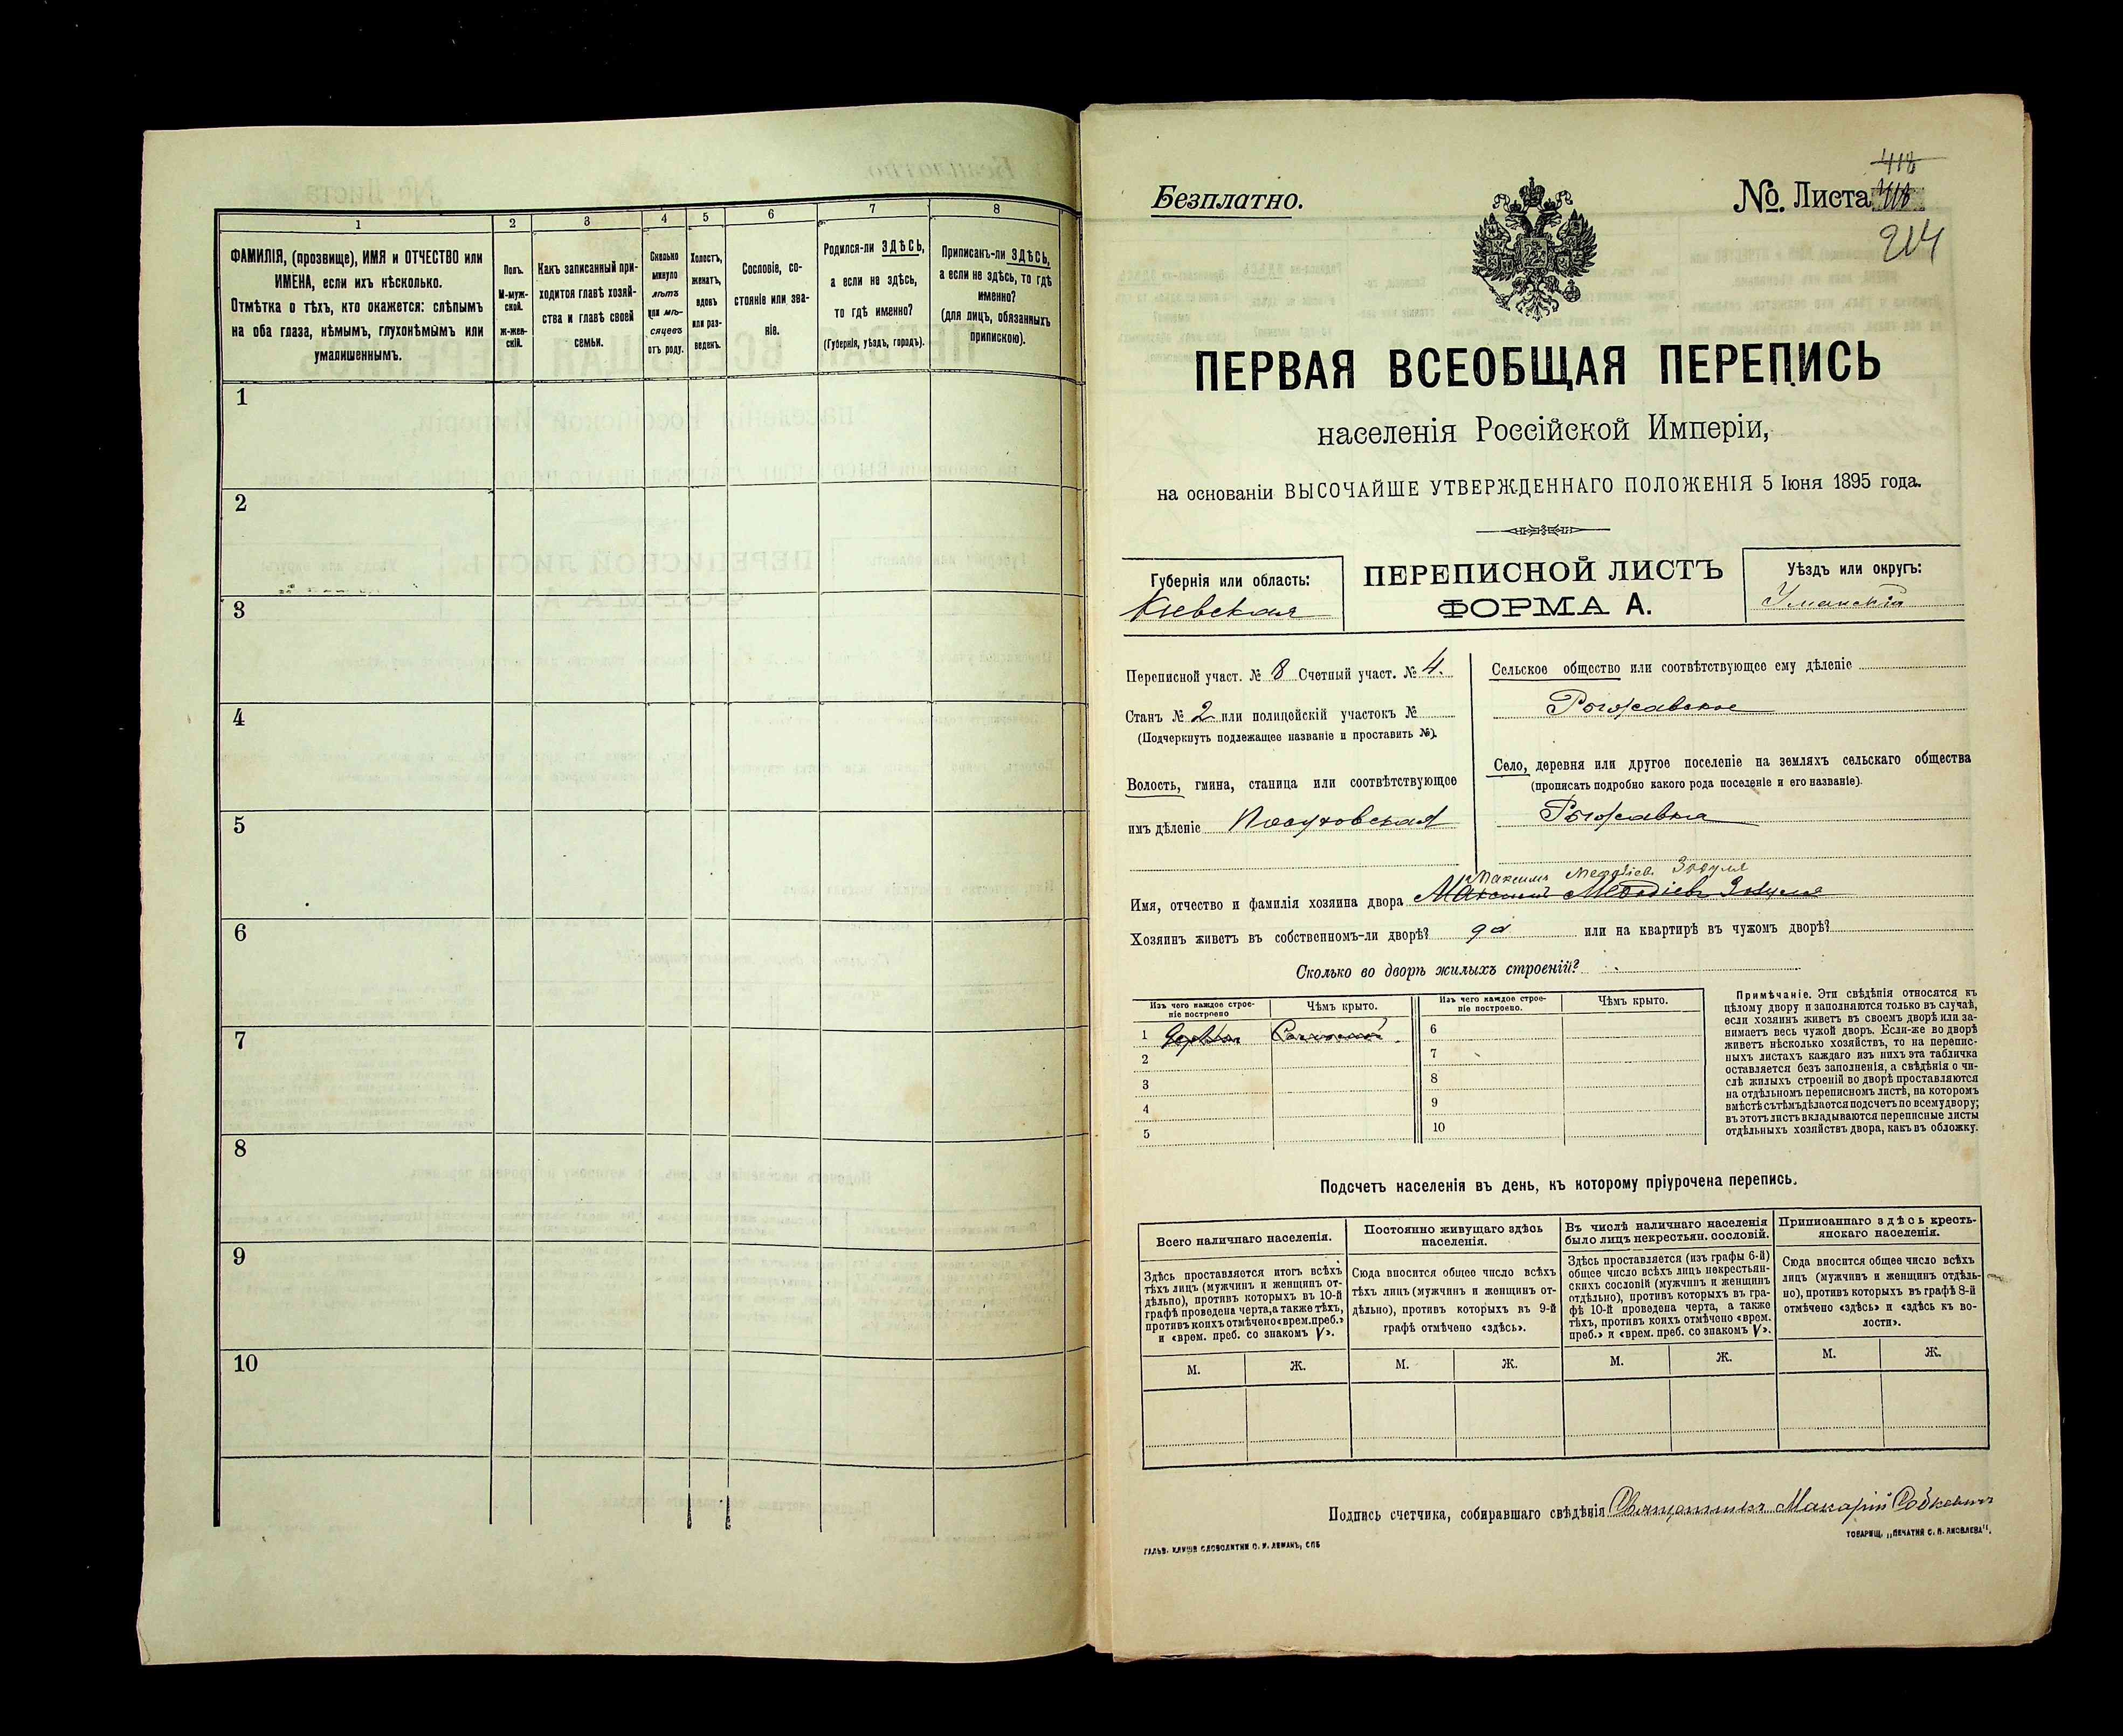 1
2
3
4
5
6
7
8
ФАМИЛІЯ, (прозвище), ИМЯ и ОТЧЕСТВО или
ИМЕНА, если ихъ нѣсколько.
Отмѣтка о тѣхъ, кто окажется: слѣпымъ
на оба глаза, нѣмымъ, глухонѣмымъ или
умалишеннымъ.
Полъ.
М-муж-
ской.
ж-жен-
скій.
Какъ записанный при-
ходится главѣ хозяй-
ства и главѣ своей
семьи.
Сколько
минуло
лѣтъ
или мѣ-
сяцевъ
отъ роду.
Холостъ,
женатъ,
вдовъ
или раз-
веденъ.
Сословіе, со-
стояніе или зва-
ніе.
Родился-ли ЗДѢСЬ,
а если не здѣсь,
то гдѣ именно?
(Губернія, уѣздъ, городъ).
Приписанъ-ли ЗДѢСЬ,
а если не здѣсь, то гдѣ
именно?
(для лицъ, обязанныхъ
припискою).
1
2
3
4
5
6
7
8
9
10
418
Безплатно.
№. Листа
214
ПЕРВАЯ ВСЕОБЩАЯ ПЕРЕПИСЬ
населенія Россійской Имперіи,
на основаніи ВЫСОЧАЙШЕ УТВЕРЖДЕННАГО ПОЛОЖЕНІЯ 5 Іюня 1895 года.
Губернія или область:
Кіевская
ПЕРЕПИСНОЙ ЛИСТЪ
ФОРМА А.
Уѣздъ или округъ:
Уманскій
Переписной участ. № 8 Счетный участ. № 4.
Станъ № 2 или полицейскій участокъ №
(Подчеркнуть подлежащее названіе и проставить №).
Волость, гмина, станица или соотвѣтствующее
имъ дѣленіе Посуховская
Сельское общество или соотвѣтствующее ему дѣленіе
Рогожавское
Село, деревня или другое поселеніе на земляхъ сельскаго общества
(прописать подробно какого рода поселеніе и его названіе).
Максимъ Меѳодіев. Зозуля
Имя, отчество и фамилія хозяина двора Максимъ Меѳодіевъ Зозуля
Хозяинъ живетъ въ собственномъ-ли дворѣ? да или на квартирѣ въ чужомъ дворѣ?
Сколько во дворѣ жилыхъ строеній?
Изъ чего каждое строе-
ніе построено
Чѣмъ крыто.
Изъ чего каждое строе-
ніе построено.
Чѣмъ крыто.
1 Соломой
2
3
4
5
6
7
8
9
10
Примѣчаніе. Эти свѣдѣнія относятся къ
цѣлому двору и заполняются только въ случаѣ,
если хозяинъ живетъ въ своемъ дворѣ или за-
нимаетъ весь чужой дворъ. Если-же во дворѣ
живетъ нѣсколько хозяйствъ, то на перепис-
ныхъ листахъ каждаго изъ нихъ эта табличка
оставляется безъ заполненія, а свѣдѣнія о чи-
слѣ жилыхъ строеній во дворѣ проставляются
на отдѣльномъ переписномъ листѣ, на которомъ
вмѣстѣ съ тѣмъ дѣлается подсчетъ по всему двору;
въ этотъ листъ вкладываются переписные листы
отдѣльныхъ хозяйствъ двора, какъ въ обложку.
Подсчетъ населенія въ день, къ которому пріурочена перепись.
Всего наличнаго населенія.
Здѣсь проставляется итогъ всѣхъ
тѣхъ лицъ (мужчинъ и женщинъ от-
дѣльно), противъ которыхъ въ 10-й
графѣ проведена черта, а также тѣхъ,
противъ коихъ отмѣчено «врем. преб.»
и «врем. преб. со знакомъ V».
Постоянно живущаго здѣсь
населенія.
Сюда вносится общее число всѣхъ
тѣхъ лицъ (мужчинъ и женщинъ от-
дѣльно), противъ которыхъ въ 9-й
графѣ отмѣчено «здѣсь».
Въ числѣ наличнаго населенія
было лицъ некрестьян. сословій.
Здѣсь проставляется (изъ графы 6-й)
общее число всѣхъ лицъ некрестьян-
скихъ сословій (мужчинъ и женщинъ
отдѣльно), противъ которыхъ въ гра-
фѣ 10-й проведена черта, а также
тѣхъ, противъ коихъ отмѣчено «врем.
преб.» и «врем. преб. со знакомъ V».
Приписаннаго здѣсь кресть-
янскаго населенія.
Сюда вносится общее число всѣхъ
лицъ (мужчинъ и женщинъ отдѣль-
но), противъ которыхъ въ графѣ 8-й
отмѣчено «здѣсь» и «здѣсь къ во-
лости».
М. Ж. М. Ж. М. Ж. М. Ж.
Подпись счетчика, собиравшаго свѣдѣнія Священникъ Макарій
ГАЛЬВ. КЛИШЕ СЛОВОЛИТНИ О. И. ЛЕМАНЪ, СПБ
ТОВАРИЩ. „ПЕЧАТНЯ С. П. ЯКОВЛЕВА".